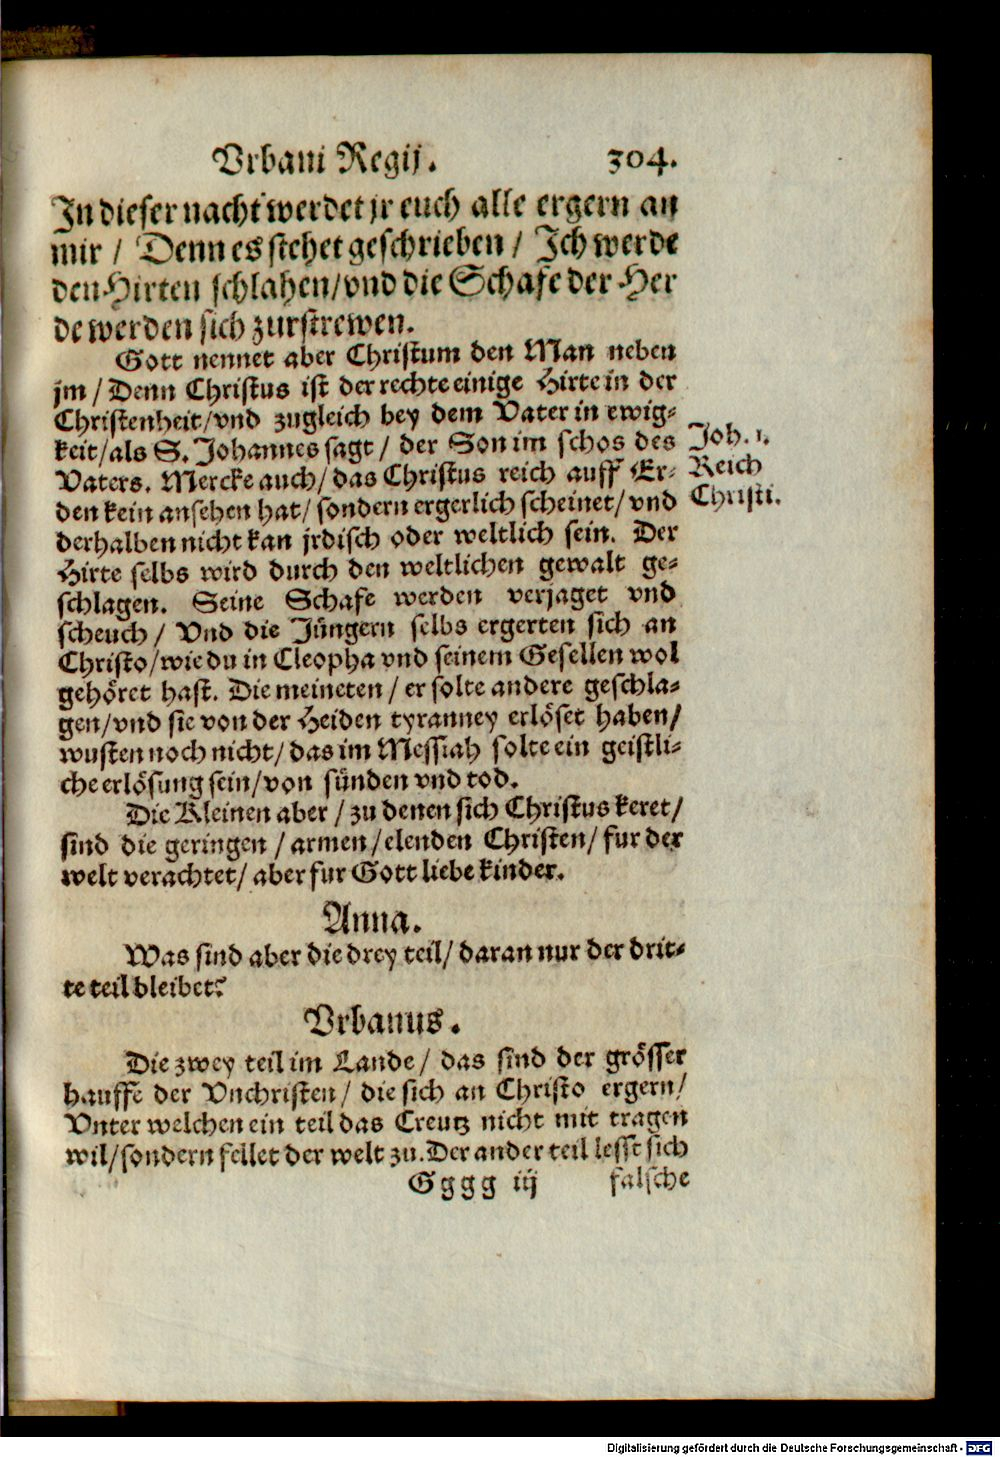 Vrbani Regij. 304.
In dieser nacht werdet jr euch alle ergern an
mir / Denn es stehet geschrieben / Jch werde
den Hirten schlahen/vnd die Schafe der Her
de werden sich zurstrewen.
Gott nennet aber Christum den Man neben
jm / Denn Christus ist der rechte einige Hirte in der
Christenheit/vnd zugleich bey dem Vater in ewig-
keit/als S. Johannes sagt / der Son im schos des
Joh. 1.
Vaters. Mercke auch/das Christus reich auff Er-
Reich
den kein ansehen hat/ sondern ergerlich scheinet/vnd
Christi.
derhalben nicht kan jrdisch oder weltlich sein. Der
Hirte selbs wird durch den weltlichen gewalt ge-
schlagen. Seine Schafe werden verjaget vnd
scheuch / Vnd die Jüngern selbs ergerten sich an
Christo/wie du in Cleopha vnd seinem Gesellen wol
gehöret hast. Die meineten / er solte andere geschla-
gen/vnd sie von der Heiden tyranney erlöset haben/
wusten noch nicht/das im Messiah solte ein geistli-
che erlösung sein/von sünden vnd tod.
Die Kleinen aber / zu denen sich Christus keret/
sind die geringen / armen/elenden Christen/ fur der
welt verachtet/ aber fur Gott liebe kinder.
Anna.
Was sind aber die drey teil/ daran nur der drit-
te teil bleibet?
Vrbanus.
Die zwey teil im Lande/ das sind der grösser
hauffe der Vnchristen/ die sich an Christo ergern/
Vnter welchen ein teil das Creutz nicht mit tragen
wil/sondern fellet der welt zu. Der ander teil lesst sich
Gggg iij falsche
Digitalisierung gefördert durch die Deutsche Forschungsgemeinschaft - DFG